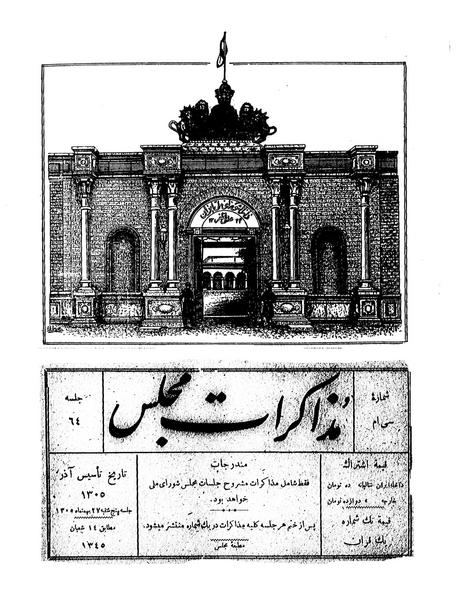 شمارهٔ
سی ام
مذاکرات مجلس
جلسه
٦٤
قیمة اشتراك
داخله ایران سالیانه ده تومان
خارجه » دوازده تومان
قیمة تك شماره
يك قران
مندرجات
فقط شامل مذاکرات مشروح جلسات مجلس شورای ملی
خواهد بود.
پس از ختم هر جلسه کلیه مذاکرات در يك شماره منتشر میشود.
مطبعهٔ مجلس
تاریخ تأسیس آذر
١٣٠٥
جلسه پنج شنبه ٢٧ بهمن ماه ١٣٠٥
مطابق ١٤ شعبان
١٣٤٥